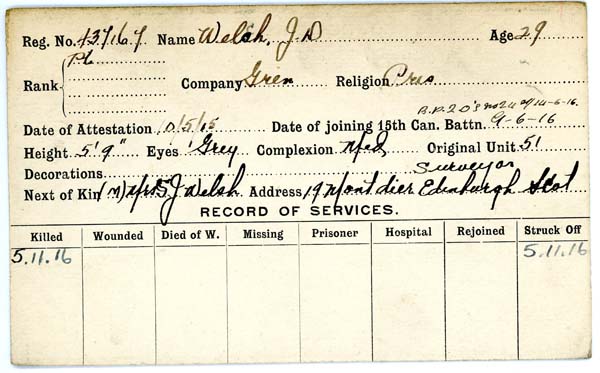 Reg. No. 437167 Name Welsh, J D Age 29
Pte
Rank Company Gren Religion Pres
B.P. 2 O's No 24 of 14-6-16.
Date of Attestation 10/5/15 Date of joining 15th Can. Battn. 9-6-16
Height 5' 9" Eyes Grey Complexion Med Original Unit 51
Decorations Surveyor
Next of Kin (M) Mrs S J Welsh Address 19 Montdier Edinburgh Scot
RECORD OF SERVICES.
Killed Wounded Died of W. Missing Prisoner Hospital Rejoined Struck Off
5.11.16 5.11.16